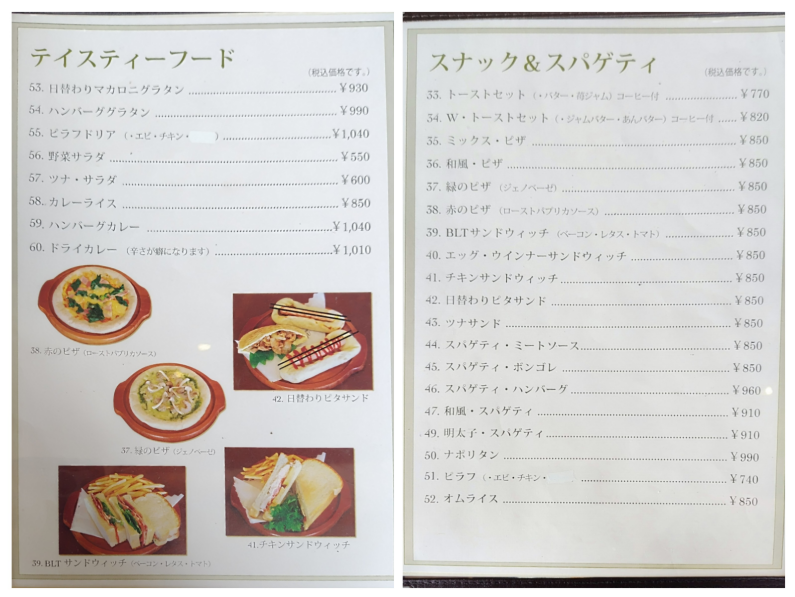 テイスティーフード
（税込価格です。）
53. 日替わりマカロニグラタン ¥930
54. ハンバーググラタン ¥990
55. ピラフドリア （・エビ・チキン・ ） ¥1,040
56. 野菜サラダ ¥550
57. ツナ・サラダ ¥600
58. カレーライス ¥850
59. ハンバーグカレー ¥1,040
60. ドライカレー （辛さが癖になります） ¥1,010
38. 赤のピザ（ローストパプリカソース）
42. 日替わりピタサンド
37. 緑のピザ（ジェノベーゼ）
41.チキンサンドウィッチ
39. BLT サンドウィッチ（ベーコン・レタス・トマト）
スナック＆スパゲティ
（税込価格です。）
33. トーストセット（・バター・苺ジャム）コーヒー付 ¥770
34. W・トーストセット（・ジャムバター・あんバター）コーヒー付 ¥820
35. ミックス・ピザ ¥850
36. 和風・ピザ ¥850
37. 緑のピザ （ジェノベーゼ） ¥850
38. 赤のピザ （ローストパプリカソース） ¥850
39. BLTサンドウィッチ （ベーコン・レタス・トマト） ¥850
40. エッグ・ウインナーサンドウィッチ ¥850
41. チキンサンドウィッチ ¥850
42. 日替わりピタサンド ¥850
43. ツナサンド ¥850
44. スパゲティ・ミートソース ¥850
45. スパゲティ・ボンゴレ ¥850
46. スパゲティ・ハンバーグ ¥960
47. 和風・スパゲティ ¥910
49. 明太子・スパゲティ ¥910
50. ナポリタン ¥990
51. ピラフ（・エビ・チキン・ ¥740
52. オムライス ¥850